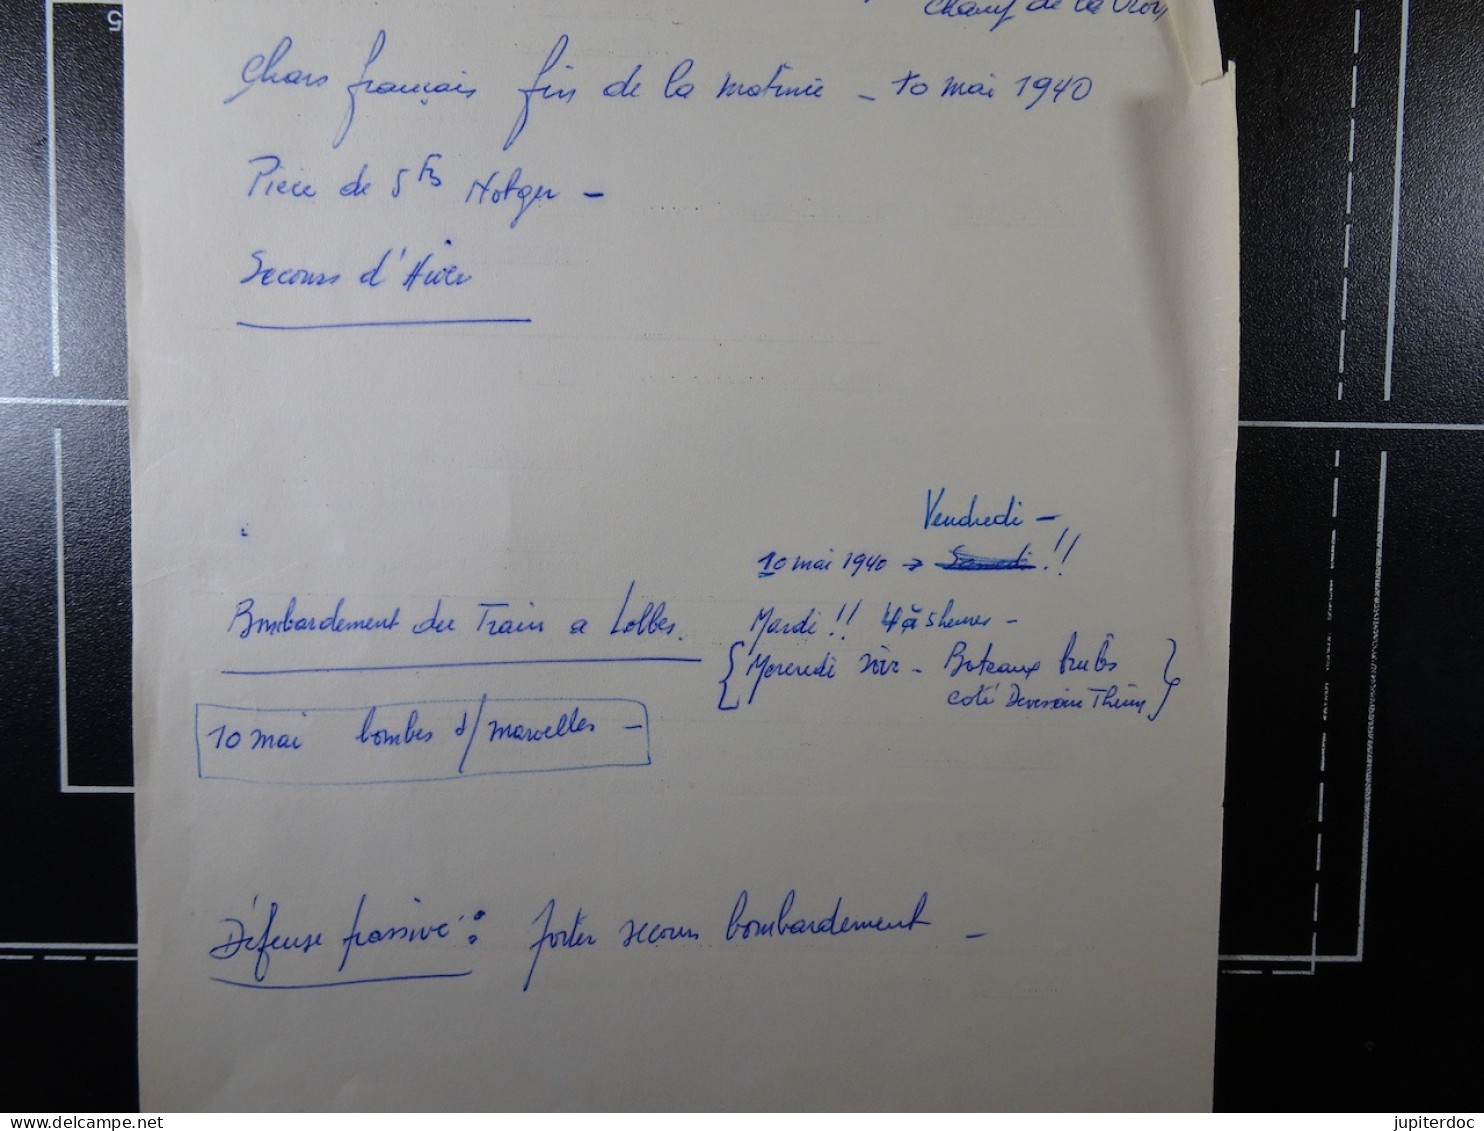 5
de la
Chars français fin de la matinée – 10 mai 1940
Pièce de 5 Frs Notger –
Secours d'Hiver
Vendredi –
10 mai 1940 → Samedi !!
Bombardement du Train a Lobbes.
Mardi !! 4 à 5 heures –
{ Mercredi soir – Bateaux brulés
coté Deversoir Thuin }
10 mai bombes s/ marcelles –
Défense passive : porter secours bombardement –
delcampe.net
jupiterdoc